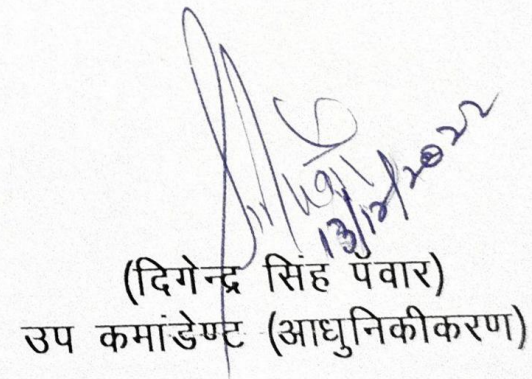 13/12/2022
(दिगेन्द्र सिंह पँवार)
उप कमांडेण्ट (आधुनिकीकरण)